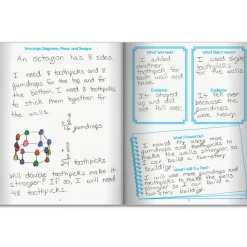 Drawings, Diagrams, Plans, and Designs
An octagon has 8 sides.
I need 8 toothpicks and 8
gumdrops for the top and for
the bottom. I need 8 toothpicks
to stick them together for
the walls.
gumdrops
toothpicks
Will double toothpicks make it
stronger? If so, I will need
48 toothpicks.
What Worked?
I added
another
toothpick for
each wall and
base.
Evidence
It stayed
up and
did not
fall over.
What Didn't Work?
I used single
toothpicks
for the
walls.
Evidence
It fell over
because the
gumdrops
were heavy.
What I Found Out
I could try using more
toothpicks and gumdrops to
make the walls stronger so
I can build a two-story
building.
What I Will Try Next
I will use more gumdrops
and toothpicks to make the
walls stronger so I can
build a two-story
building.